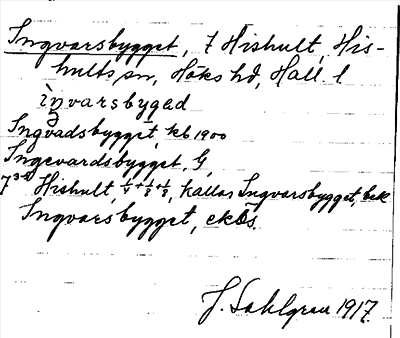 Ingvarsbygget, 7 Hishult, His-
hults sn, Höks hd, Hall. l
iŋvarsbyged
Ingvadsbygget, kb 1900
Ingevardsbygget, G
7³⁻⁴ Hishult, ¼+⅛+⅛, kallas Ingvarsbygget, bek
Ingvarsbygget, ekbs.
J. Sahlgren 1917.